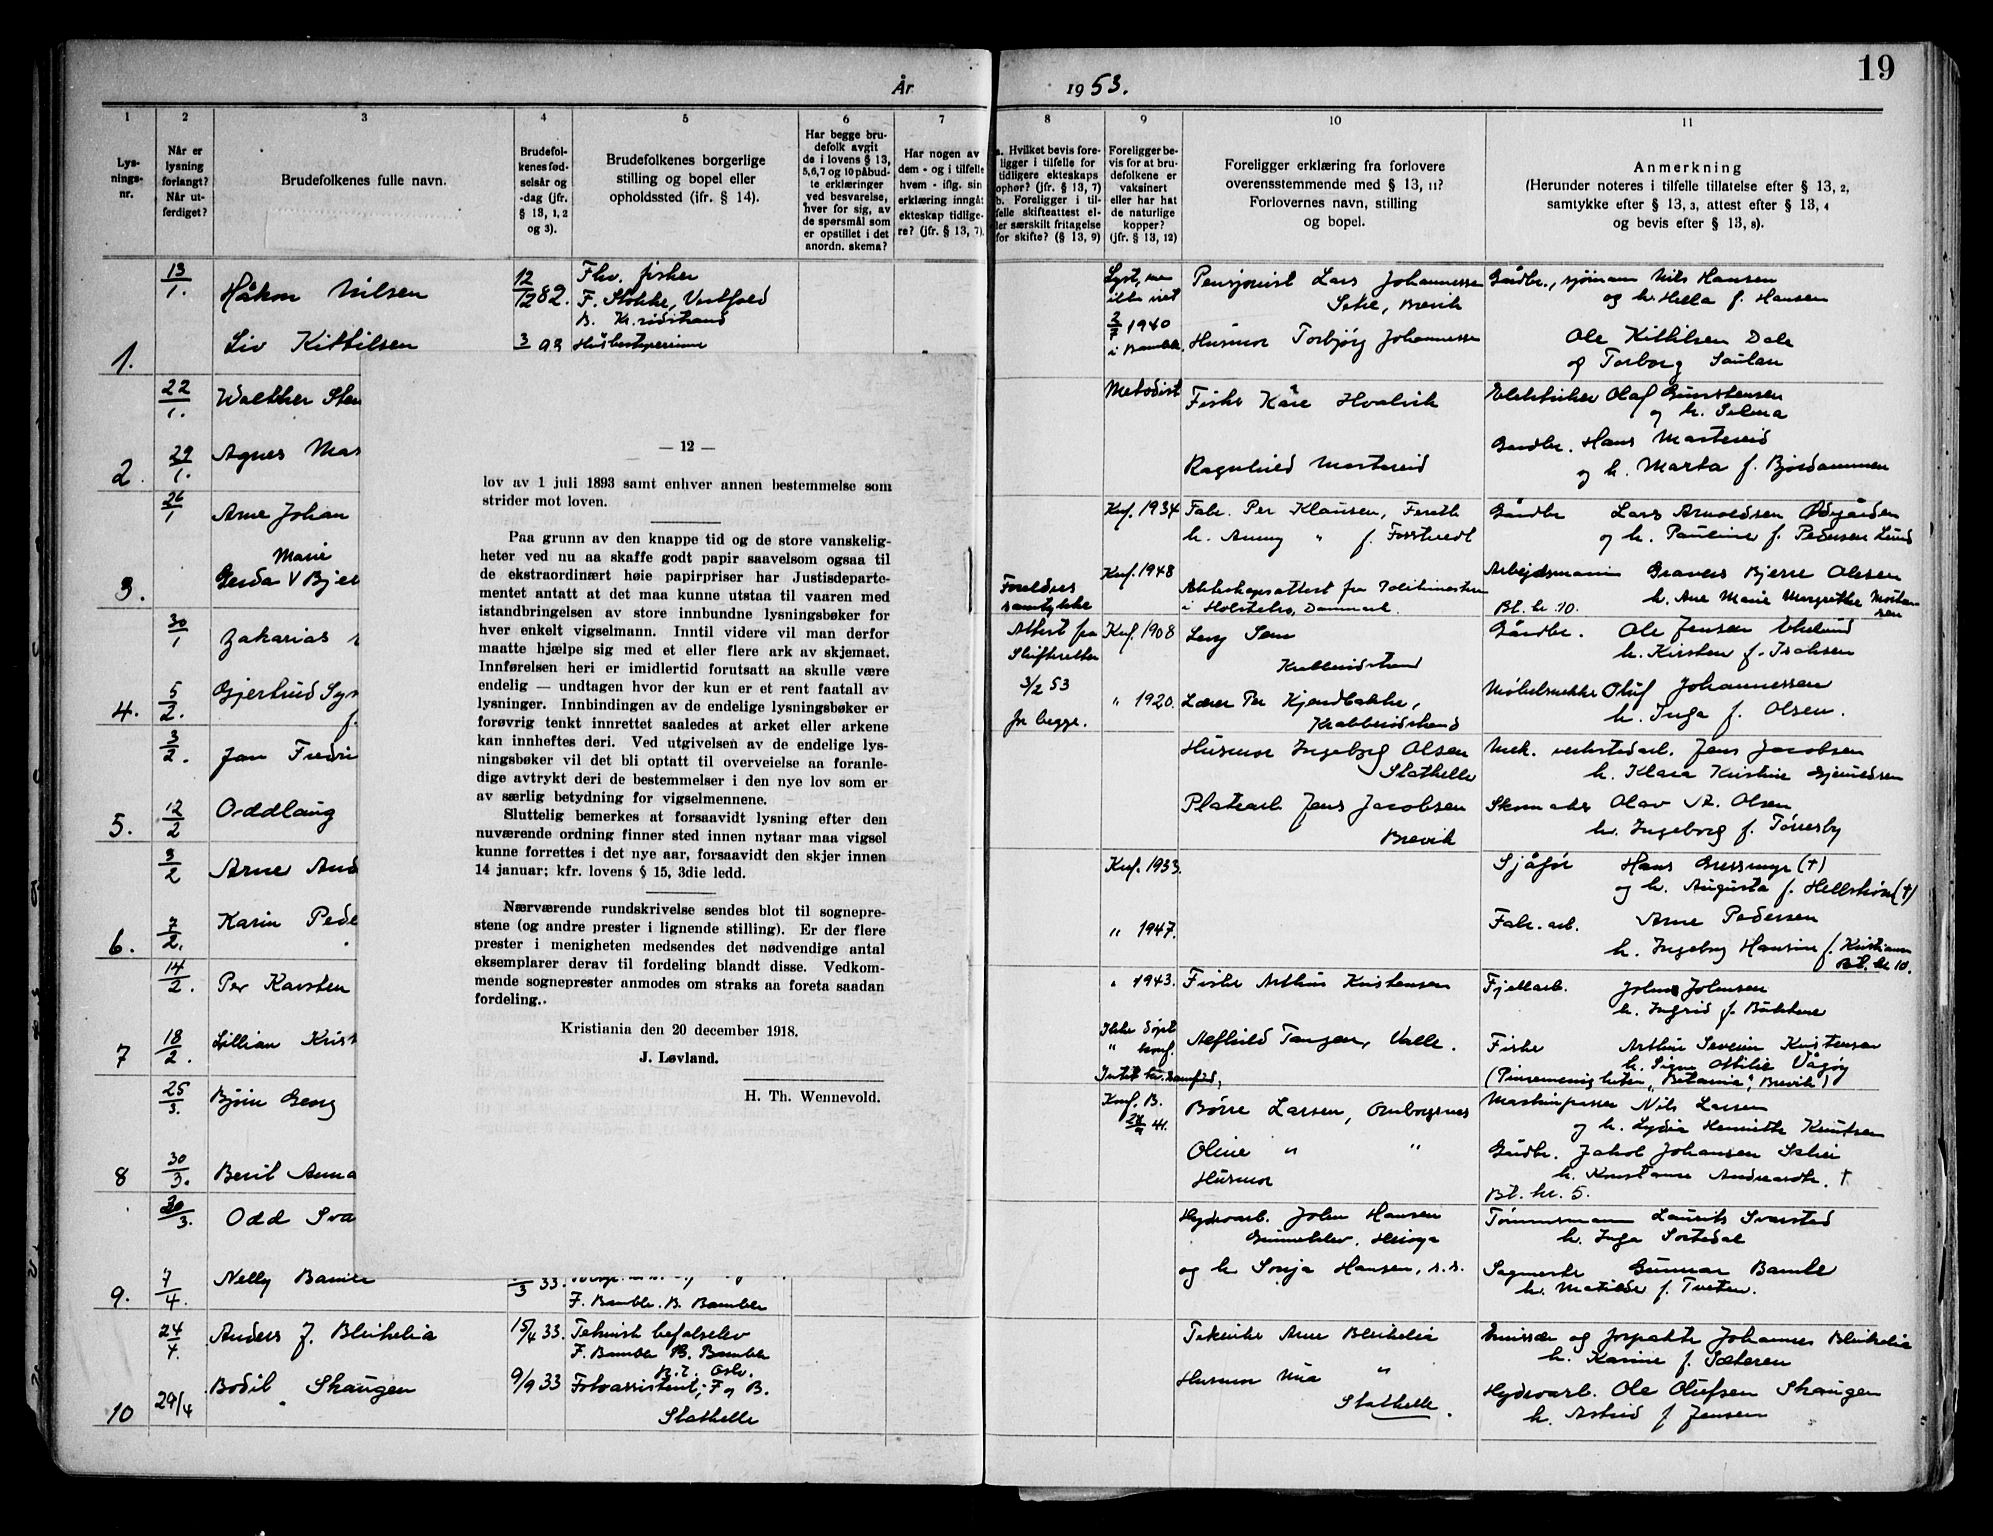 19
År
1953.
1
2
3
4
5
6
7
8
9
10
11
Lys-
nings-
nr.
Når er
lysning
forlangt?
Når ut-
ferdiget?
Brudefolkenes fulle navn.
Brudefol-
kenes fød-
selsår og
-dag (jfr.
§ 13, 1, 2
og 3).
Brudefolkenes borgerlige
stilling og bopel eller
opholdssted (jfr. § 14).
Har begge bru-
defolk avgit
de i lovens § 13,
5,6,7 og 10 påbud-
te erklæringer
ved besvarelse,
hver for sig, av
de spørsmål som
er opstillet i det
anordn. skema?
Har nogen av
dem - og i tilfelle
hvem - iflg. sin
erklæring inngåt
ekteskap tidlige-
re? (jfr. § 13, 7).
a. Hvilket bevis fore-
ligger i tilfelle for
tidligere ekteskaps
ophør? (jfr. § 13, 7)
b. Foreligger i til-
felle skifteattest el-
ler særskilt fritagelse
for skifte? (§ 13, 9)
Foreligger be-
vis for at bru-
defolkene er
vaksinert
eller har hat
de naturlige
kopper?
(jfr. § 13, 12)
Foreligger erklæring fra forlovere
overensstemmende med § 13, 11?
Forlovernes navn, stilling
og bopel.
Anmerkning
(Herunder noteres i tilfelle tillatelse efter § 13, 2,
samtykke efter § 13, 3, attest efter § 13, 4
og bevis efter § 13, 8).
13/1.
Håkon Nilsen
12/12 82.
Fhv. fisker
F. Stokke, Vestfold
B. Kr.ridstrand
1.
Liv Kittilsen
22/1.
Walther Sten
2.
29/1.
Agnes Mas
26/1
Arne Johan
Marie
3.
Gerda V Bjer
30/1
Zakarias
4.
5/2.
Gjertrud Syn
f.
3/2.
Jan Fredri
5.
12/2
Oddlaug
3/2
Arne And
6.
7/2.
Karin Pede
14/2.
Per Karsten
7
18/2.
Lillian Krist
25/3.
Bjørn Georg
8
30/3.
Beril Anna
30/3.
Odd Sva
9.
7/4.
Nelly Bamle
/3 33.
F. Bamble. B. Bamble
24/4.
Anders J. Bleikelia
15/4 33.
Teknist befalselev
F. Bamble B. Bamble
B. t. Oslo.
10
29/4
Bodil Skaugen
9/9 33
Fotoassistent; F og B.
Stathelle
— 12 —
lov av 1 juli 1893 samt enhver annen bestemmelse som
strider mot loven.
Paa grunn av den knappe tid og de store vanskelig-
heter ved nu aa skaffe godt papir saavelsom ogsaa til
de ekstraordinært høie papirpriser har Justisdeparte-
mentet antatt at det maa kunne utstaa til vaaren med
istandbringelsen av store innbundne lysningsbøker for
hver enkelt vigselmann. Inntil videre vil man derfor
maatte hjælpe sig med et eller flere ark av skjemaet.
Innførelsen heri er imidlertid forutsatt aa skulle være
endelig — undtagen hvor der kun er et rent faatall av
lysninger. Innbindingen av de endelige lysningsbøker er
forøvrig tenkt innrettet saaledes at arket eller arkene
kan innheftes deri. Ved utgivelsen av de endelige lys-
ningsbøker vil det bli optatt til overveielse aa foranle-
dige avtrykt deri de bestemmelser i den nye lov som er
av særlig betydning for vigselmennene.
Sluttelig bemerkes at forsaavidt lysning efter den
nuværende ordning finner sted innen nytaar maa vigsel
kunne forrettes i det nye aar, forsaavidt den skjer innen
14 januar; kfr. lovens § 15, 3die ledd.
Nærværende rundskrivelse sendes blot til sognepre-
stene (og andre prester i lignende stilling). Er der flere
prester i menigheten medsendes det nødvendige antal
eksemplarer derav til fordeling blandt disse. Vedkom-
mende sogneprester anmodes om straks aa foreta saadan
fordeling..
Kristiania den 20 december 1918.
J. Løvland.
H. Th. Wennevold.
2/7 1940
i Bamble.
Pensjonist Lars Johannessen
Setre, Brevik
Husmor Torbjørg Johannessen
Gårdbr., sjømann Nils Hansen
og h. Hella f. Hansen
Ole Kittilsen Dale
og Torborg
Metodist
Fisker Kåre Hvalvik
Ragnhild Mostereid
Elektriker Olaf
og h. Selma
Gardbr. Hans Mostereid
og h. Marta f. Bjordammen
Knf. 1934
Fabr. Per Klausen,
h. Anny " f.
Gårdbr Lars Arnoldsen Ødegården
og h. Pauline f. Pedersen Lund
Foreldres
samtykke
Knf. 1948
Ekteskapsattest fra Politimesteren
i Holstebro, Danmark.
Arbejdsmann Gravers Bjerre Olesen
Bl. nr. 10. h. Ane Marie Margrethe Morten-
sen
Attest fra
Skifteretten
3/2 53
for begge.
Knf. 1908
Levy Sem
Krabberødstrand
Gårdbr. Ole Jensen Ekelund
h. Kirsten f. Isaksen
" 1920.
Lærer Per Kjendbakke,
Krabberødstrand
Møbelsnekker Oluf Johannessen
h. Inga f. Olsen.
Husmor Ingebjrg Olsen
Stathelle
Mek. verkstedarb. Jens Jacobsen
h. Klara Kristine
Platearb Jens Jacobsen
Brevik
Skomaker Olav A. Olsen
h. Ingeborg f. Tørresby
Knf. 1933.
Sjåfør Hans (†)
og h. Augusta f. Hellstrøm (†)
" 1947.
Fabr. arb. Arne Pedersen
h. Ingeborg Hansine f. Kristiansen
Bl. nr 10.
" 1943.
Fisker Arthur Kristensen
Fjellarb. Johns Johnsen
h. Ingrid f. Bakkene
Ikke døpt
" konf.
Intet kr. samfund,
Alfhild Tangen, Valle.
Fisker Arthur Severin Kristensen
h. Signe Ottilie Vågøy
(Pinsemenigheten "Betania", Brevik)
Konf. B.
Børre Larsen, Omborgsnes
Maskinpasser Nils Larsen
og h. Lydia Henriette Knutsen
Oline " "
Husmor
Gårdbr. Jakob Johansen
h. Konstanse †
Bl. nr. 5.
Hydroarb. John Hansen
Herøya
Tømmermann Laurits Svarstad
h. Inga Sortedal
og h Sonja Hansen, s.s.
Sagmester Gunnar Bamle
h. Matilde f. Tveten.
Tekniker Arne Bleikelia
Emissær og Johannes Bleikelia
h. Karine f. Sæteren
Husmor Mia "
Stathelle.
Hydroarb. Ole Olufsen Skaugen
h. Astrid f. Jensen